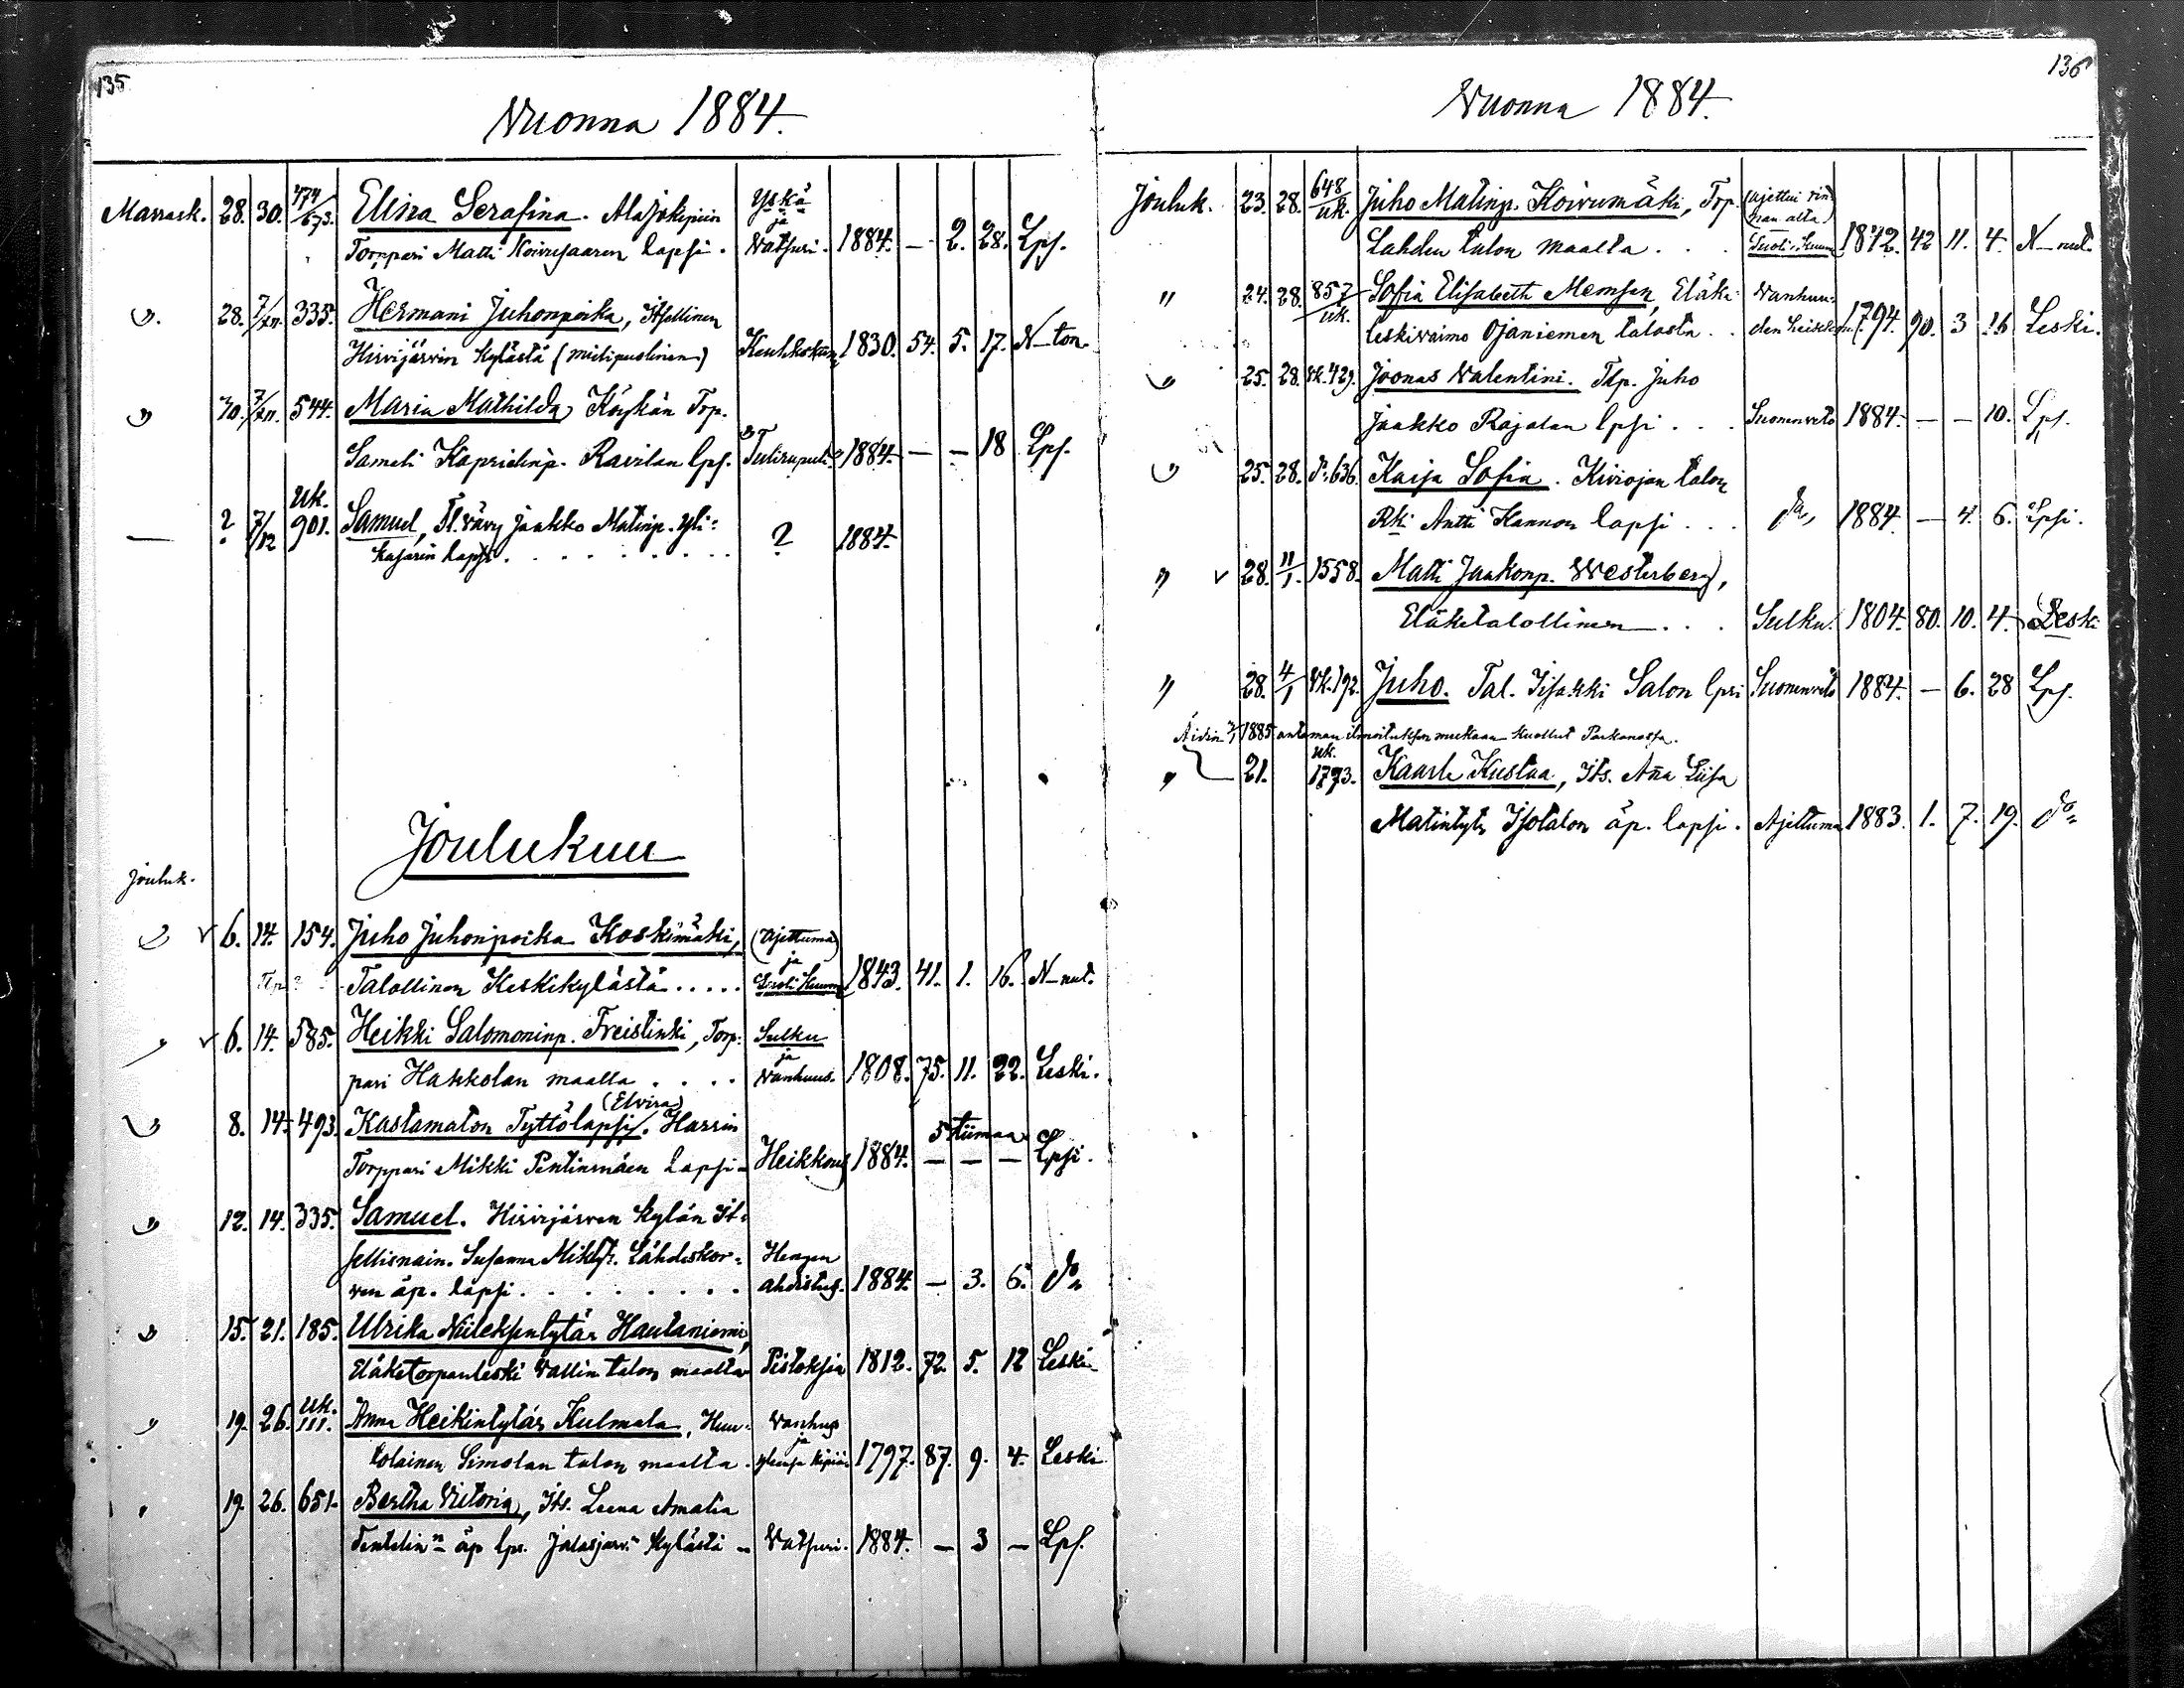 135
Vuonna 1884.
Marrask. 28. 30. 474/673. Elina Serafina. Alajokipiin Yskä ja
Torppari Matti Koivusaaren lapsi. Watsuri. 1884. — 2. 28. Lps.
28. 7/XII. 335. Hermani Juhonpoika, Itsellinen
Hirvijärvin kylästä (mielipuolinen) Keuhkokuume 1830. 54. 5. 17. N—ton
30. 7/XII. 544. Maria Mathilda, Köykän Torp.
Sameli Kaprielinp. Ravilan lps. Tulirupuli 1884. — — 18 Lps.
— ? 7/12 Uk. 901. Samuel, Tl. vävy Jaakko Matinp. Yli-
kasarin lapsi. ? 1884.
Joulukuu
Jouluk.
6. 14. 154. Juho Juhonpoika Koskimäki, (Ajettuma) ja
Talollinen Keskikylästä ..... 1843. 41. 1. 16. N—nut.
" 6. 14. 585. Heikki Salomoninp. Freistinki, Torp- Sulku ja
pari Hakkolan maalla .... Wanhuus. 1808. 75. 11. 22. Leski.
(Elvira)
8. 14. 493. Kastamaton Tyttölapsi. Harrin 5 tiimaa
Torppari Mikki Pentinmäen lapsi— Heikkous 1884. — — — Lpsi.
12. 14. 335. Samuel. Hirvijärven kylän It-
sellisnain. Susanna Mikkt. Lähdeskor- Hengen
ven äp. lapsi ........ ahdistus. 1884. — 3. 6. do
15. 21. 185. Ulrika Niileksentytär Hautaniemi,
Eläketorpanleski Vallin talon maalta Pistoksia 1812. 72. 5. 12 Leski
" 19. 26. Uk. 111. Anna Heikintytär Kulmala, Huu- Wanhuus ja
tolainen Simolan talon maalta. 1797. 87. 9. 4. Leski
" 19. 26. 651. Bertha Vitoria, Its. Leena Amalia
äp lps. Jalasjärv. kylästä — Watsuri. 1884. — 3 — Lps.
136
Vuonna 1884.
Jouluk. 23. 28. 648/uk. Juho Matinp. Koivumäki, Trp. (Ajettui rin-
nan alta)
Lahden talon maalta ... 1842. 42 11. 4. N—nut.
" 24. 28. 857/uk. Sofia Elisabeth Memsen, Eläke- Wanhuu-
leskivaimo Ojaniemen talosta .. den heikkous 1794. 90. 3 16 Leski.
25. 28. Uk. 429. Joonas Valentini. Tlp. Juho
Jaakko Rajalan lpsi ... Suonenveto 1884. — — 10. Lps.
25. 28. do 636. Kaisa Sofia. Kiviojan talon
Rki Antti Kannon lapsi ... do 1884. — 4. 6. Lpsi.
" 28. 11/1. 1558. Matti Jaakonp. Westerberg,
Eläketalollinen ... Sulku. 1804. 80. 10. 4. Leski
" 28. 4/1 Uk. 192. Juho. Tal. Iisakki Salon lpsi Suonenveto 1884. — 6. 28 Lps.
Äidin 1885 antaman ilmoituksen mukaan kuollut Parkanossa.
" 21. uk. 1793. Kaarle Kustaa, Its. Anna Liisa
Matintytr Isotalon äp. lapsi. Ajettuma 1883. 1. 7. 19. do